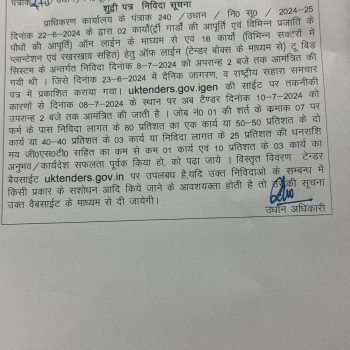 शुद्वी पत्र निविदा सूचना
प्राधिकरण कार्यालय के पंत्राक 240 /उधान / नि० सू० / 2024–25
दिनांक 22–6–2024 के द्वारा 02 कार्यों(ट्री गार्डो की आपूर्ति एवं विभिन्न प्रजाति के
पौधों की आपूर्ति) ऑन लाईन के माध्यम से एवं 16 कार्यो (विभिन्न सक्टरों में
प्लान्टेशन एवं रखरखाव सहित) हेतु ऑफ लाईन (टेन्डर बोक्स के माध्यम से) टू बिड
सिस्टम के अन्तर्गत निविदा दिनांक 8–7–2024 को अपरान्ह 2 बजे तक आमंत्रित की
गयी थी । जिसे दिनांक 23–6–2024 में दैनिक जागरण, व राष्ट्रीय सहारा समाचार
पत्र में प्रकाशित कराया गया। uktenders.gov.igen की साईट पर तकनीकी
कारणों से दिनांक 08–7–2024 के स्थान पर अब टैण्डर दिनांक 10–7–2024 को
उपरान्ह 2 बजे तक आमंत्रित की जाती है । जोब नं० 01 की शर्त के कमाक 07 पर
फर्म के पास निविदा लागत के 80 प्रतिशत का एक कार्य या 50–50 प्रतिशत के दो
कार्य या 40–40 प्रतिशत के 03 कार्य या निविदा लागत के 25 प्रतिशत की धनराशि
मय जी०एस०टी० सहित का कम से कम 01 कार्य एवं 10 प्रतिशत के 03 कार्य का
अनुभव/कार्यदेश सफलता पूर्वक किया हो, को पढा जाये । विस्तृत दिवरण टेन्डर
बैवसाईट uktenders.gov.in पर उपलबध है,यदि उक्त निविदाओं के सम्बन्ध में
किसी प्रकार के सशोधन आदि किये जाने के आवशयक्ता होती है तो उसकी सूचना
उक्त वैबसाईट के माध्यम से दी जायेगी।
उधान अधिकारी